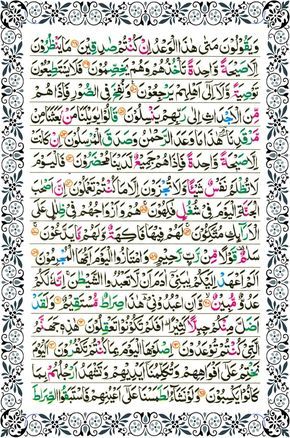 وَيَقُولُونَ مَتٰى هٰذَا الْوَعْدُ اِنْ كُنْتُمْ صٰدِقِيْنَ ۝ مَا يَنْظُرُونَ
اِلَّا صَيْحَةً وَّاحِدَةً تَاْخُذُهُمْ وَهُمْ يَخِصِّمُوْنَ ۝ فَلَا يَسْتَطِيْعُوْنَ
تَوْصِيَةً وَّلَاۤ اِلٰۤى اَهْلِهِمْ يَرْجِعُوْنَ ۝ وَنُفِخَ فِى الصُّوْرِ فَاِذَا هُمْ
مِّنَ الْاَجْدَاثِ اِلٰى رَبِّهِمْ يَنْسِلُوْنَ ۝ قَالُوْا يٰوَيْلَنَا مَنْۢ بَعَثَنَا مِنْ
مَّرْقَدِنَا هٰذَا مَا وَعَدَ الرَّحْمٰنُ وَصَدَقَ الْمُرْسَلُوْنَ ۝ اِنْ كَانَتْ
اِلَّا صَيْحَةً وَّاحِدَةً فَاِذَا هُمْ جَمِيْعٌ لَّدَيْنَا مُحْضَرُوْنَ ۝ فَالْيَوْمَ
لَا تُظْلَمُ نَفْسٌ شَيْـًٔا وَّلَا تُجْزَوْنَ اِلَّا مَا كُنْتُمْ تَعْمَلُوْنَ ۝ اِنَّ اَصْحٰبَ
الْجَنَّةِ الْيَوْمَ فِىْ شُغُلٍ فٰكِهُوْنَ ۝ هُمْ وَاَزْوَاجُهُمْ فِىْ ظِلٰلٍ عَلَى
الْاَرَآئِكِ مُتَّكِـُٔوْنَ ۝ لَهُمْ فِيْهَا فَاكِهَةٌ وَّلَهُمْ مَّا يَدَّعُوْنَ ۝
سَلٰمٌ قَوْلًا مِّنْ رَّبٍّ رَّحِيْمٍ ۝ وَامْتَازُوا الْيَوْمَ اَيُّهَا الْمُجْرِمُوْنَ ۝
اَلَمْ اَعْهَدْ اِلَيْكُمْ يٰبَنِىْۤ اٰدَمَ اَنْ لَّا تَعْبُدُوا الشَّيْطٰنَ اِنَّهٗ لَكُمْ
عَدُوٌّ مُّبِيْنٌ ۝ وَّاَنِ اعْبُدُوْنِىْ هٰذَا صِرَاطٌ مُّسْتَقِيْمٌ ۝ وَلَقَدْ
اَضَلَّ مِنْكُمْ جِبِلًّا كَثِيْرًا اَفَلَمْ تَكُوْنُوْا تَعْقِلُوْنَ ۝ هٰذِهٖ جَهَنَّمُ
الَّتِىْ كُنْتُمْ تُوْعَدُوْنَ ۝ اِصْلَوْهَا الْيَوْمَ بِمَا كُنْتُمْ تَكْفُرُوْنَ ۝ اَلْيَوْمَ
نَخْتِمُ عَلٰۤى اَفْوَاهِهِمْ وَتُكَلِّمُنَاۤ اَيْدِيْهِمْ وَتَشْهَدُ اَرْجُلُهُمْ بِمَا
كَانُوْا يَكْسِبُوْنَ ۝ وَلَوْ نَشَآءُ لَطَمَسْنَا عَلٰۤى اَعْيُنِهِمْ فَاسْتَبَقُوا الصِّرَاطَ